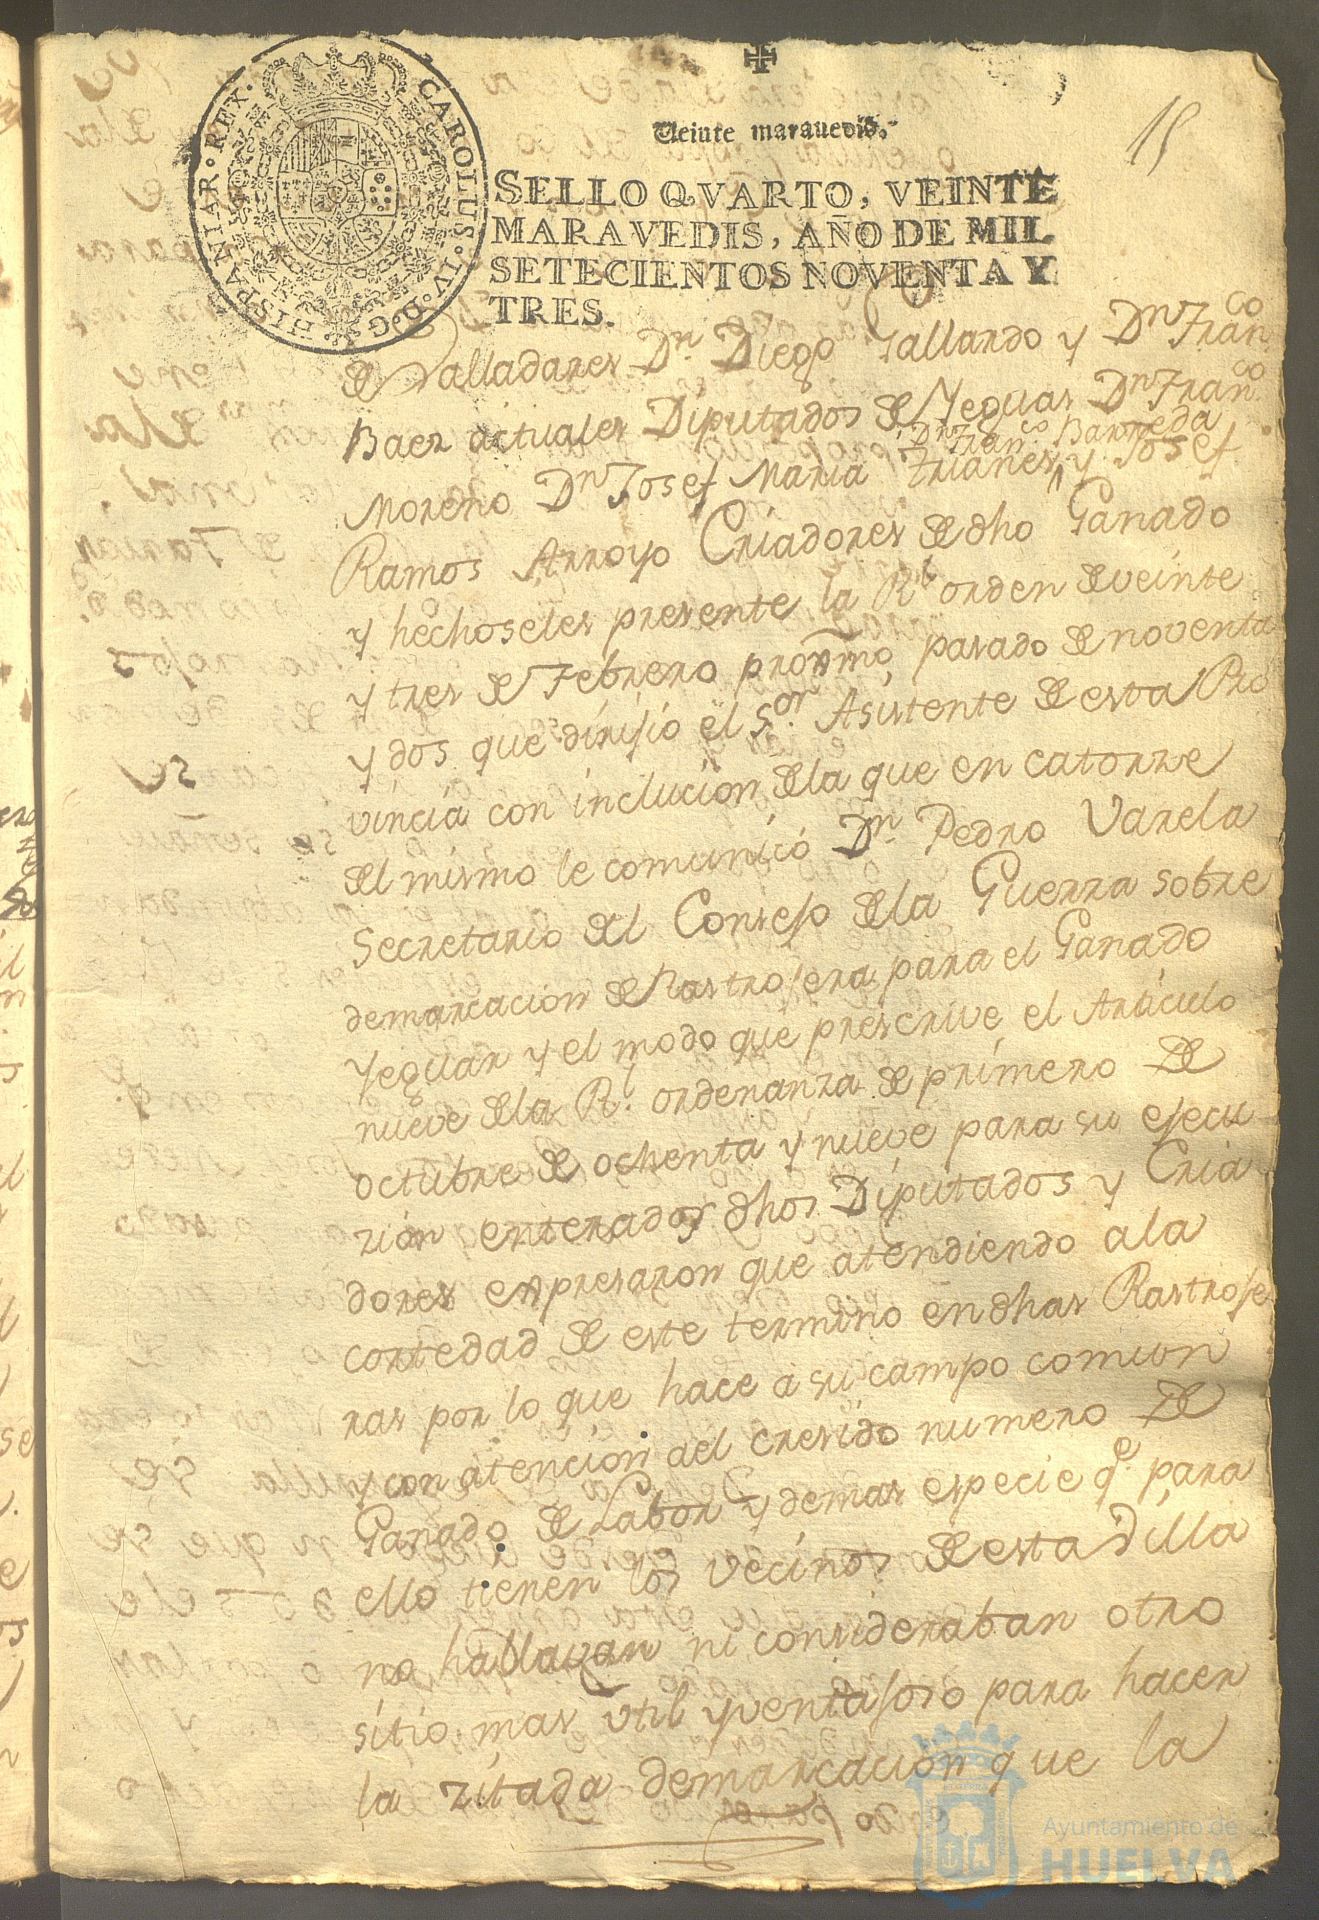 15
Veinte maravedis.
SELLO QVARTO, VEINTE
MARAVEDIS, AÑO DE MIL
SETECIENTOS NOVENTA Y
TRES.
CAROLUS·IV·D·G·HISPANIAR·REX·
de Valladares Dn. Diego Gallardo y Dn Franco
Baez actuales Diputados de Yeguas Dn Franco
Dn Franco Barreda
Moreno Dn Josef Maria Trianes y Josef
Ramos Arroyo Criadores de dho Ganado
y hechoseles presente la Rl orden de veinte
y tres de Febrero proxmo pasado de noventa
y dos que dirijio el Sor Asistente de esta Pro
vincia con inclucion de la que en catorze
del mismo le comunicó Dn Pedro Varela
Secretario del Consejo de la Guerra sobre
demarcacion de Rastrojera para el Ganado
Yeguar y el modo que prescrive el Articulo
nueve de la Rl. ordenanza de primero de
octubre de ochenta y nueve para su ejecu
zion enterados dhos Diputados y Cria
dores expresaron que atendiendo a la
cortedad de este termino en dhas Rastroje
ras por lo que hace a su campo comun
y con atencion del cresido numero de
Ganado de Labor y demas especie qe para
ello tienen los vecinos de esta Villa
no hallavan ni consideraban otro
sitio mas util y ventajoso para hacer
la zitada demarcacion que la
Ayuntamiento de
HUELVA